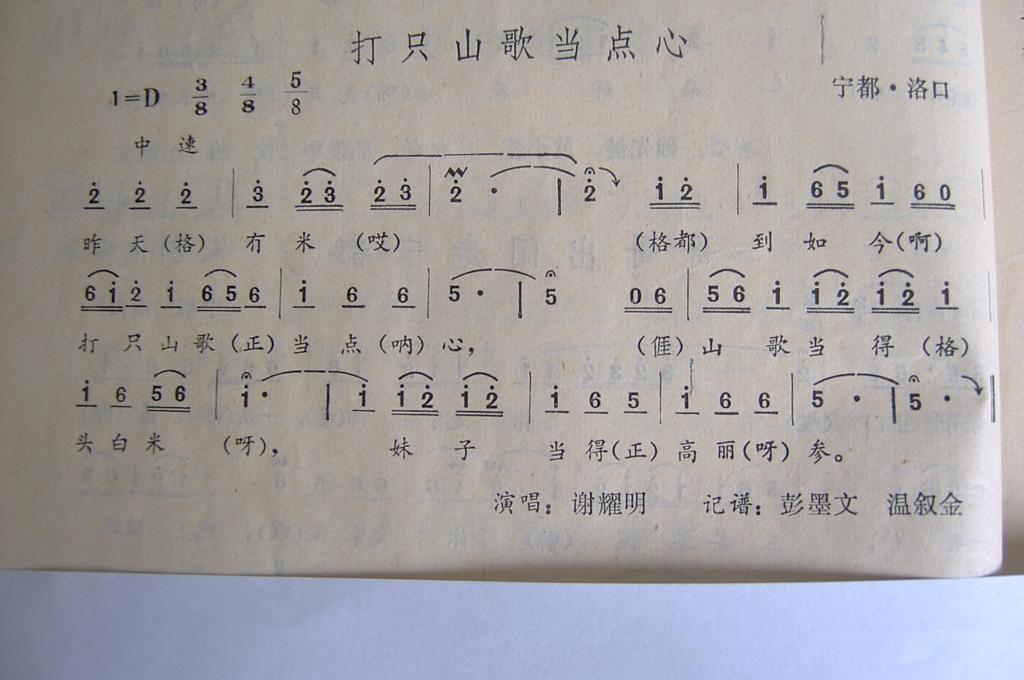 打只山歌当点心
1=D 3/8 4/8 5/8 宁都·洛口
中速
2̇ 2̇ 2̇ | 3̇ 2̇3̇ 2̇3̇ | 2̇ · | 2̇ 1̇2̇ | 1̇ 65 1̇ 60 |
昨 天(格) 有 米 (哎) (格都) 到 如 今(啊)
61̇2̇ 1̇ 656 | 1̇ 6 6 | 5 · | 5 06 | 56 1̇ 1̇2̇ 1̇2̇ 1̇
打 只 山歌(正)当 点 (呐) 心, (𠊎)山 歌当 得 (格)
1̇ 6 56 | 1̇ · | 1̇ 1̇2̇ 1̇2̇ | 1̇ 6 5 | 1̇ 6 6 | 5 · | 5 · |
头白米 (呀), 妹 子 当 得(正)高 丽(呀) 参。
演唱: 谢耀明 记谱: 彭墨文 温叙金